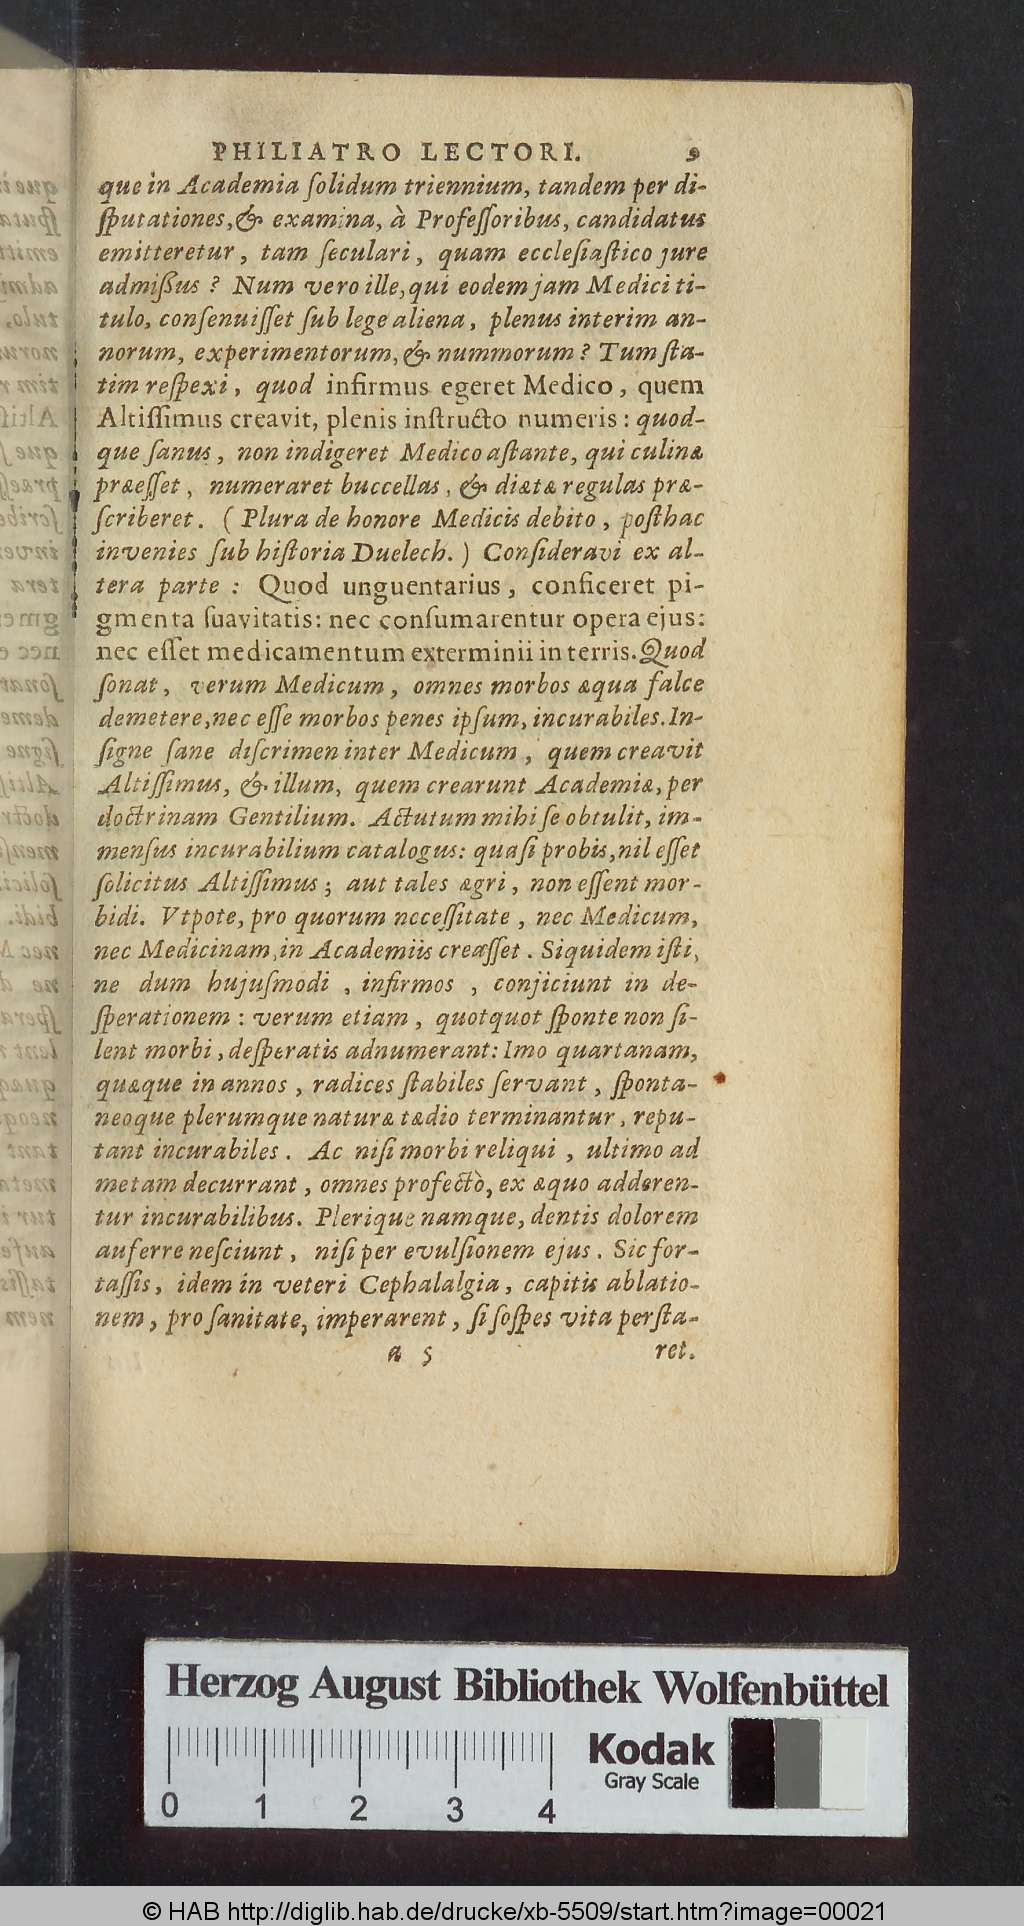 PHILIATRO LECTORI. 9
que in Academia ſolidum triennium, tandem per di-
ſputationes, & examina, à Profeſſoribus, candidatus
emitteretur, tam ſeculari, quam eccleſiaſtico jure
admißus ? Num vero ille, qui eodem jam Medici ti-
tulo, conſenuiſſet ſub lege aliena, plenus interim an-
norum, experimentorum, & nummorum ? Tum ſta-
tim reſpexi, quod infirmus egeret Medico, quem
Altiſſimus creavit, plenis inſtructo numeris: quod-
que ſanus, non indigeret Medico aſtante, qui culinæ
præeſſet, numeraret buccellas, & diætæ regulas præ-
ſcriberet. ( Plura de honore Medicis debito, poſthac
invenies ſub hiſtoria Duelech. ) Conſideravi ex al-
tera parte : Quod unguentarius, conficeret pi-
gmenta ſuavitatis: nec conſumarentur opera ejus:
nec eſſet medicamentum exterminii in terris. Quod
ſonat, verum Medicum, omnes morbos æqua falce
demetere, nec eſſe morbos penes ipſum, incurabiles. In-
ſigne ſane diſcrimen inter Medicum, quem creavit
Altiſſimus, & illum, quem crearunt Academiæ, per
doctrinam Gentilium. Actutum mihi ſe obtulit, im-
menſus incurabilium catalogus: quaſi probis, nil eſſet
ſolicitus Altiſſimus; aut tales ægri, non eſſent mor-
bidi. Vtpote, pro quorum neceſſitate, nec Medicum,
nec Medicinam, in Academiis creaſſet. Siquidem iſti,
ne dum hujuſmodi, infirmos, conjiciunt in de-
ſperationem : verum etiam, quotquot ſponte non ſi-
lent morbi, deſperatis adnumerant: Imo quartanam,
quæque in annos, radices ſtabiles ſervant, ſponta-
neoque plerumque naturæ tædio terminantur, repu-
tant incurabiles. Ac niſi morbi reliqui, ultimo ad
metam decurrant, omnes profectò, ex æquo adderen-
tur incurabilibus. Plerique namque, dentis dolorem
auferre neſciunt, niſi per evulſionem ejus. Sic for-
taſſis, idem in veteri Cephalalgia, capitis ablatio-
nem, pro ſanitate, imperarent, ſi ſoſpes vita perſta-
a 5 ret.
Herzog August Bibliothek Wolfenbüttel
Kodak
Gray Scale
0 1 2 3 4
© HAB http://diglib.hab.de/drucke/xb-5509/start.htm?image=00021